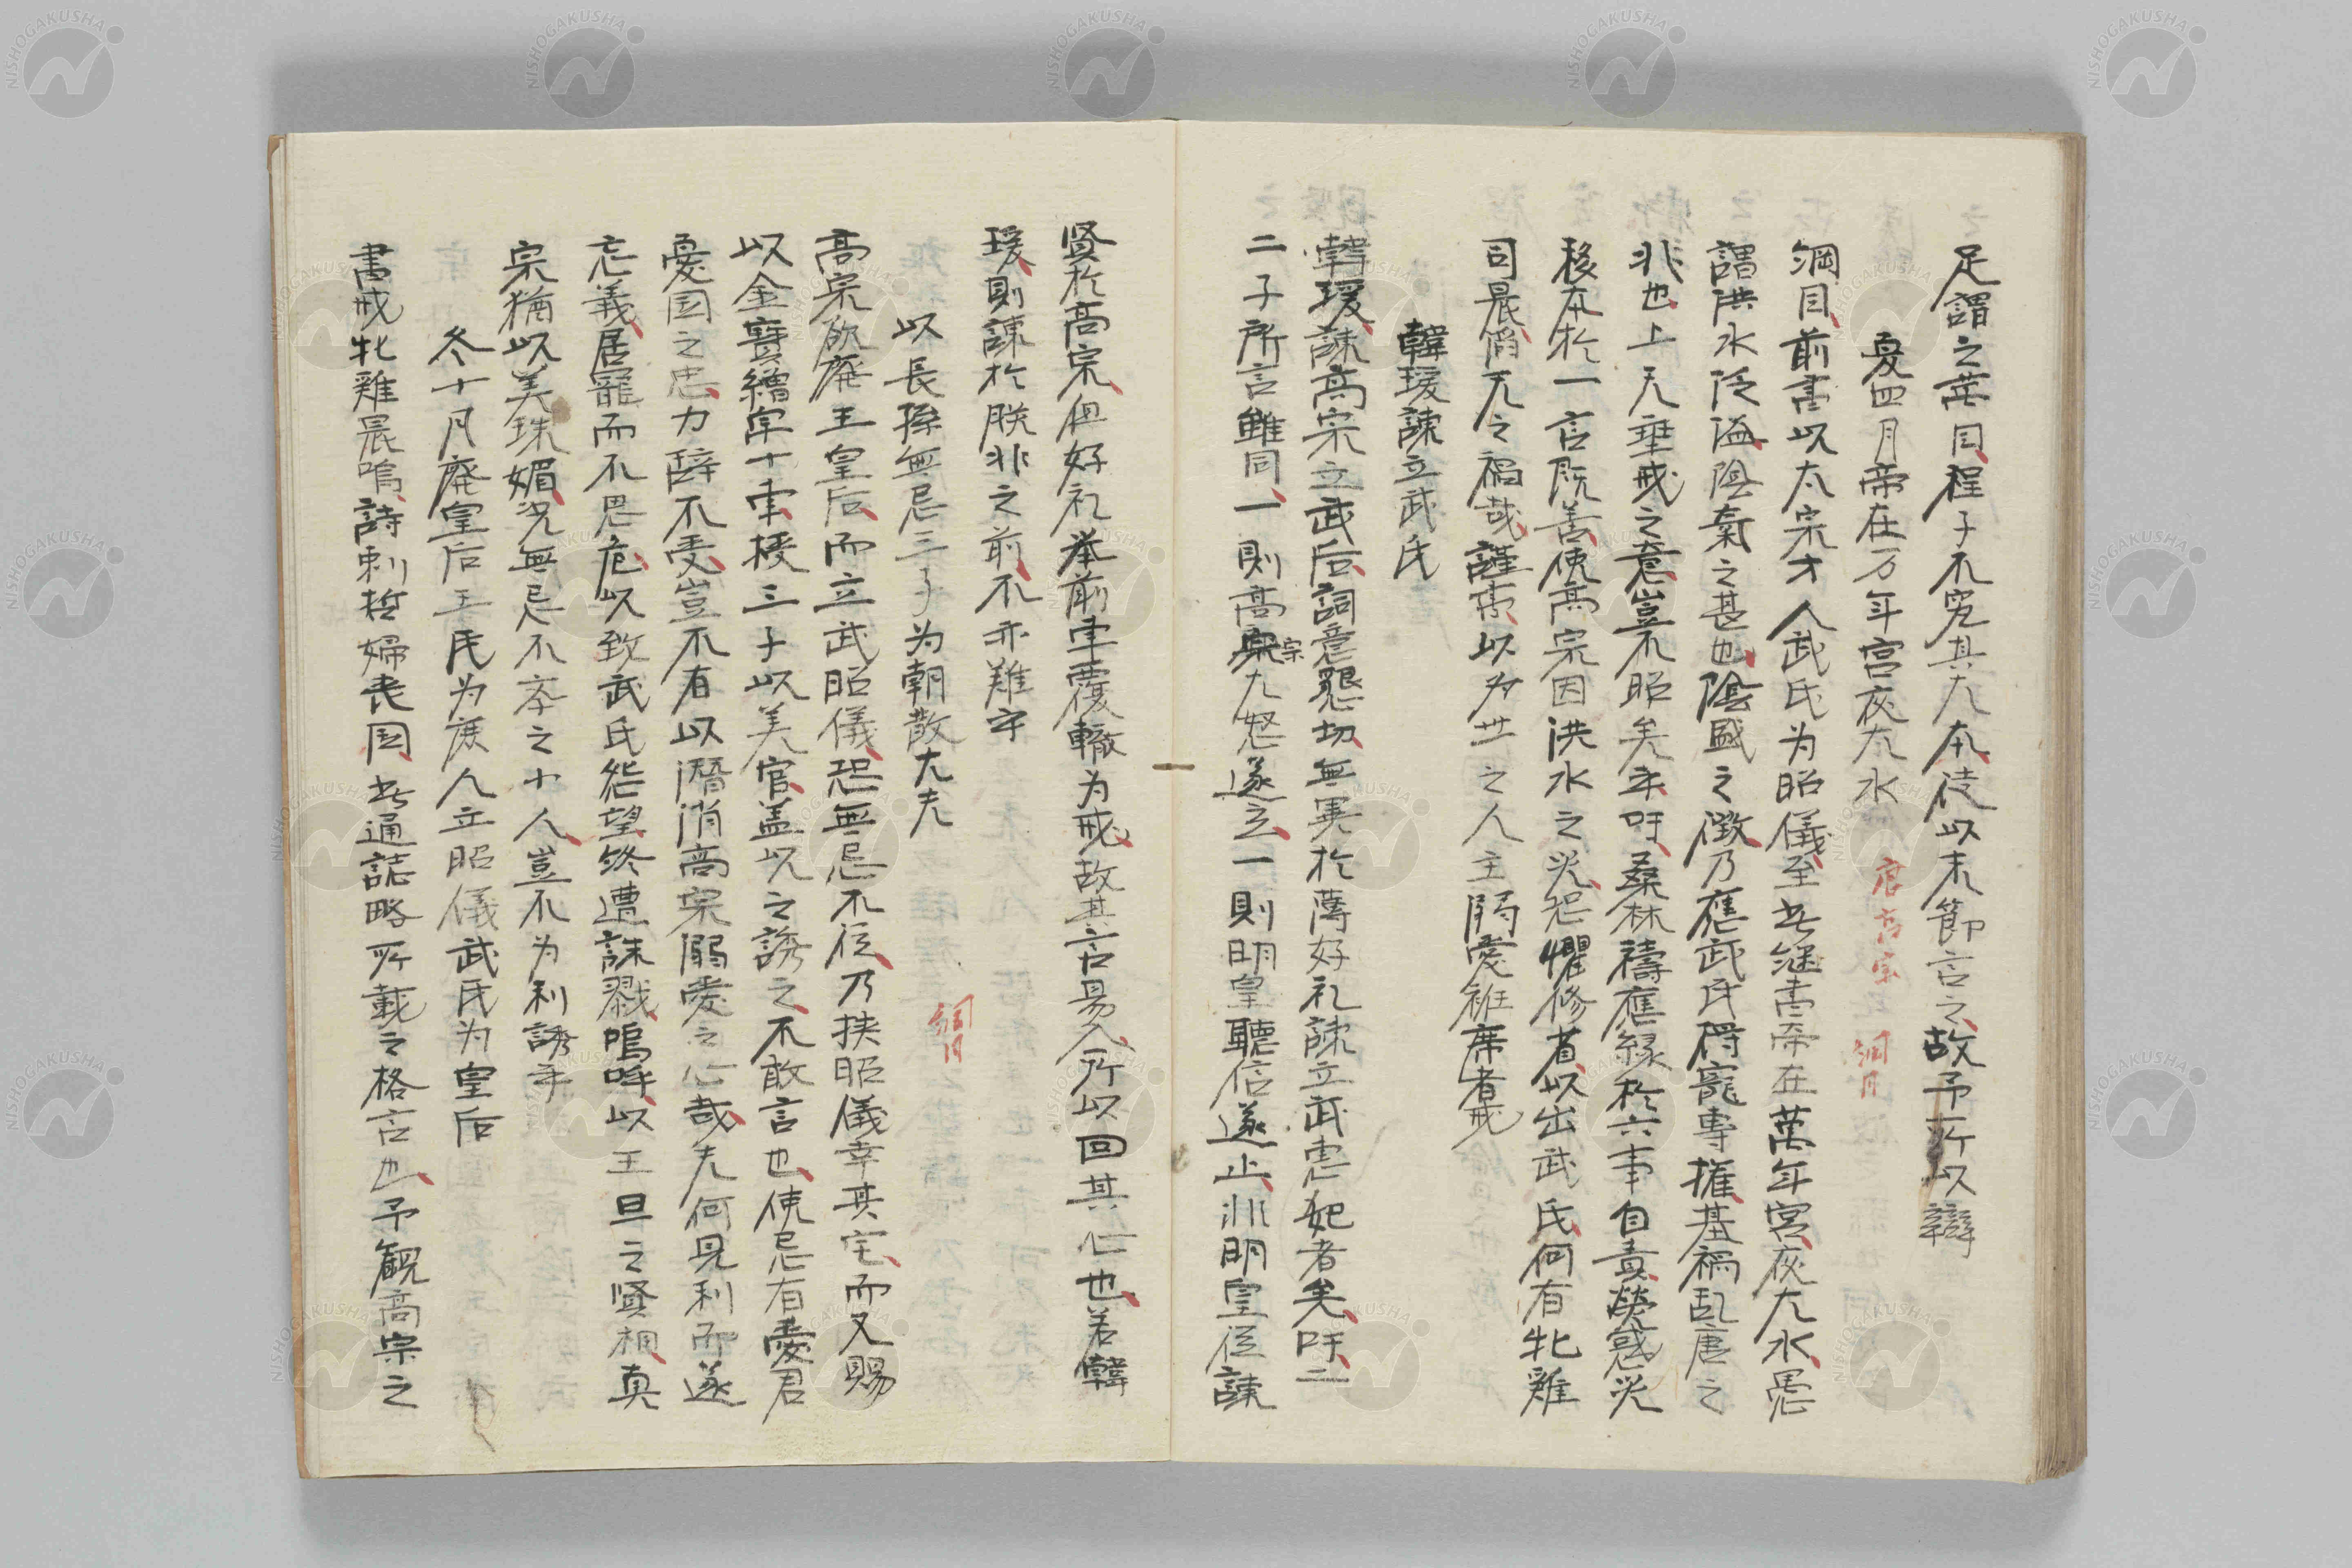 足謂之無因程子不究其大本徒以末節言之故予所以辯
夏四月帝在万年宮夜大水 唐高宗 綱目
綱目前書以太宗才人武氏为昭儀至此継書帝在萬年宮夜大水愚
謂洪水泛溢陰氣之甚也陰盛之徴乃應武氏得寵專権基禍乱唐之
兆也上天垂戒之意豈不昭矣乎吁桑林禱應縁於六事自責熒惑災
移本於一言既善使高宗因洪水之災恐懼修省以出武氏何有牝雞
司晨僭兀之禍哉謹書以为世之人主溺愛袵席者戒
韓瑗諫立武氏
韓瑗諫高宗立武后詞意懇切無異於薄好礼諫立武惠妃者矣吁二
二子所言雖同一則高宗大怒遂立一則明皇聽信遂止非明皇従諫
賢於高宗但好礼举前車覆轍为戒故其言易入所以回其心也若韓
瑗則諫於朕非之前不亦難乎
以長孫無忌三子为朝散大夫 綱目
高宗欲廃王皇后而立武昭儀恐無忌不従乃挟昭儀幸其宅而又賜
以金寶繒帛十車授三子以美官盖以之誘之不敢言也使忌有愛君
憂国之忠力辞不受豈不有以潛消高宗溺愛之心哉夫何見利而遂
忘義居寵而不思危以致武氏怨望終遭誅戮嗚呼以王旦之賢相真
宗猶以美珠媚况無忌不卒之小人豈不为利誘乎
冬十月廃皇后王氏为庶人立昭儀武氏为皇后
書戒牝雞晨鳴詩刺哲婦丧国此通誌略所載之格言也予観高宗之
NISHOGAKUSHA